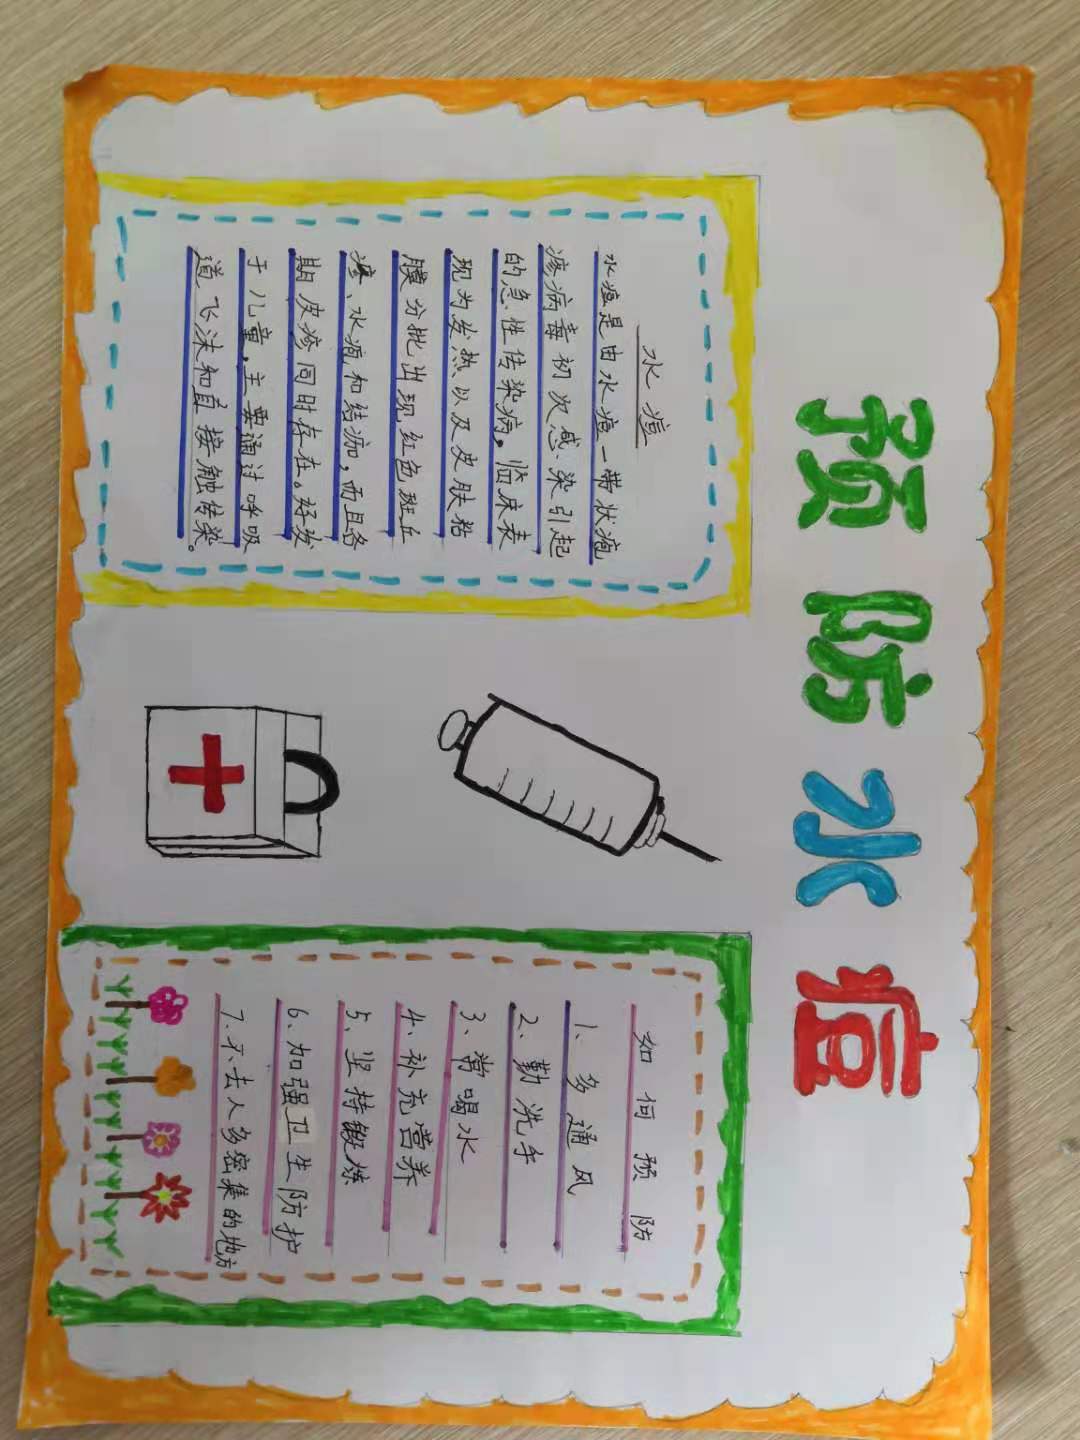 预防水痘
水痘
水痘是由水痘一带状疱
疹病毒初次感染引起
的急性传染病。临床表
现为发热以及皮肤粘
膜分批出现红色斑丘
疹、水疱和结痂,而且各
期皮疹同时存在。好发
于儿童,主要通过呼吸
道飞沫和直接触传染。
如何预防
1、多通风
2、勤洗手
3、常喝水
4、补充营养
5、坚持锻炼
6、加强卫生防护
7、不去人多密集的地方